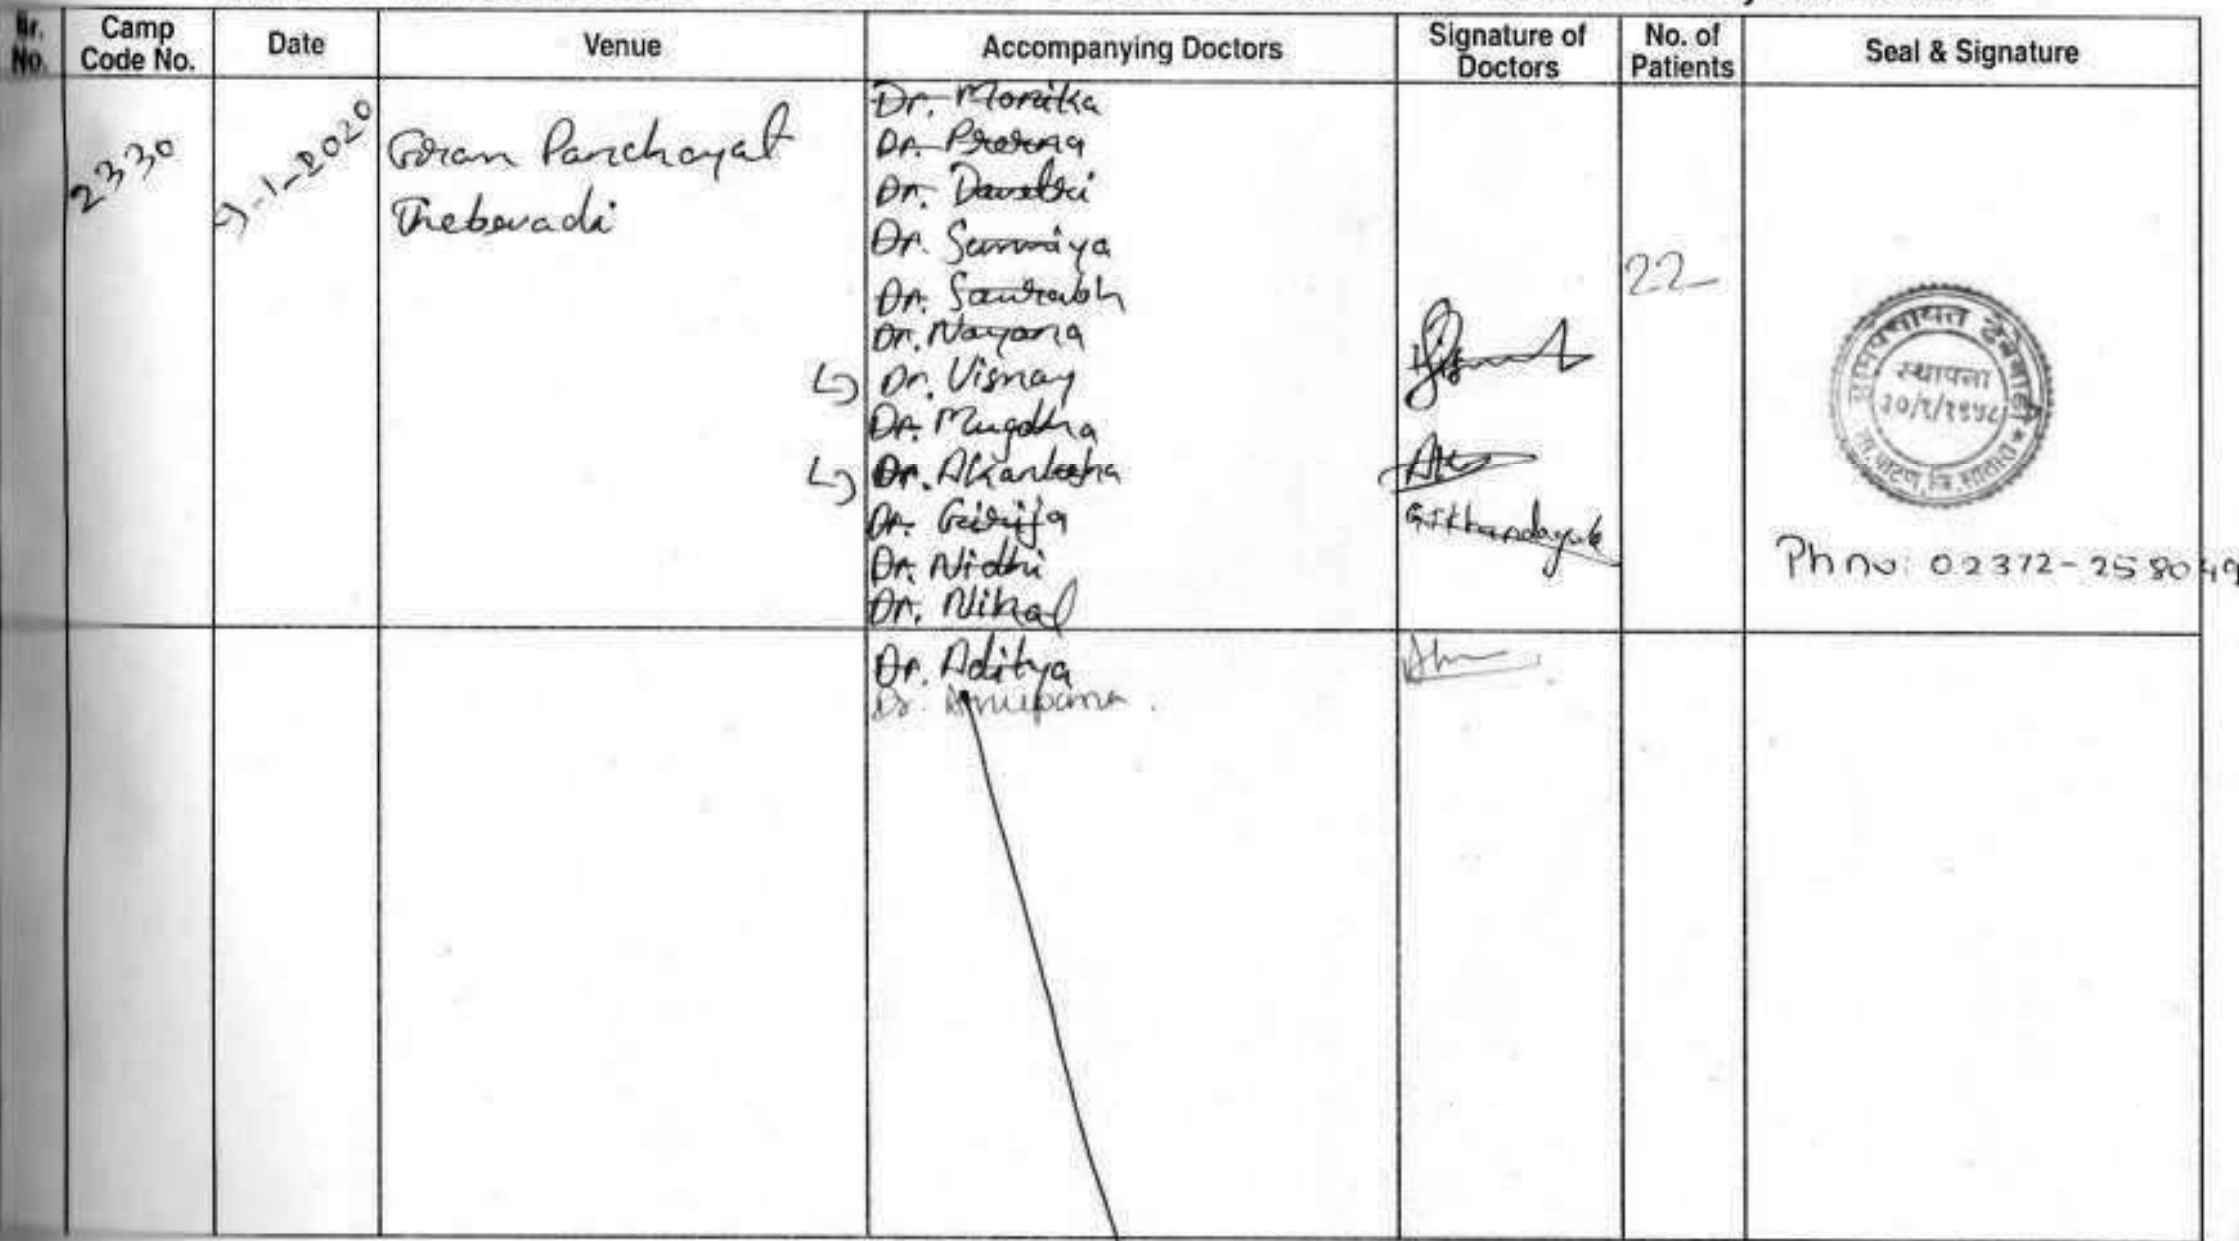 Sr. No. Camp Code No. Date Venue Accompanying Doctors Signature of Doctors No. of Patients Seal & Signature
2330 9-1-2020 Gram Panchayat
Thebevadi
Dr. Monika
Dr. Prerna
Dr.
Dr. Sumaiya
Dr. Saurabh
Dr. Nayana
Dr. Vismay
Dr. Mugdha
Dr. Akanksha
Dr. Girija
Dr. Nidhi
Dr. Nihal
22
ग्रामपंचायत ढेबेवाडी
स्थापना
ता. पाटण, जि. सातारा
Ph no: 02372-258049
Dr. Aditya
Dr. Anupama.